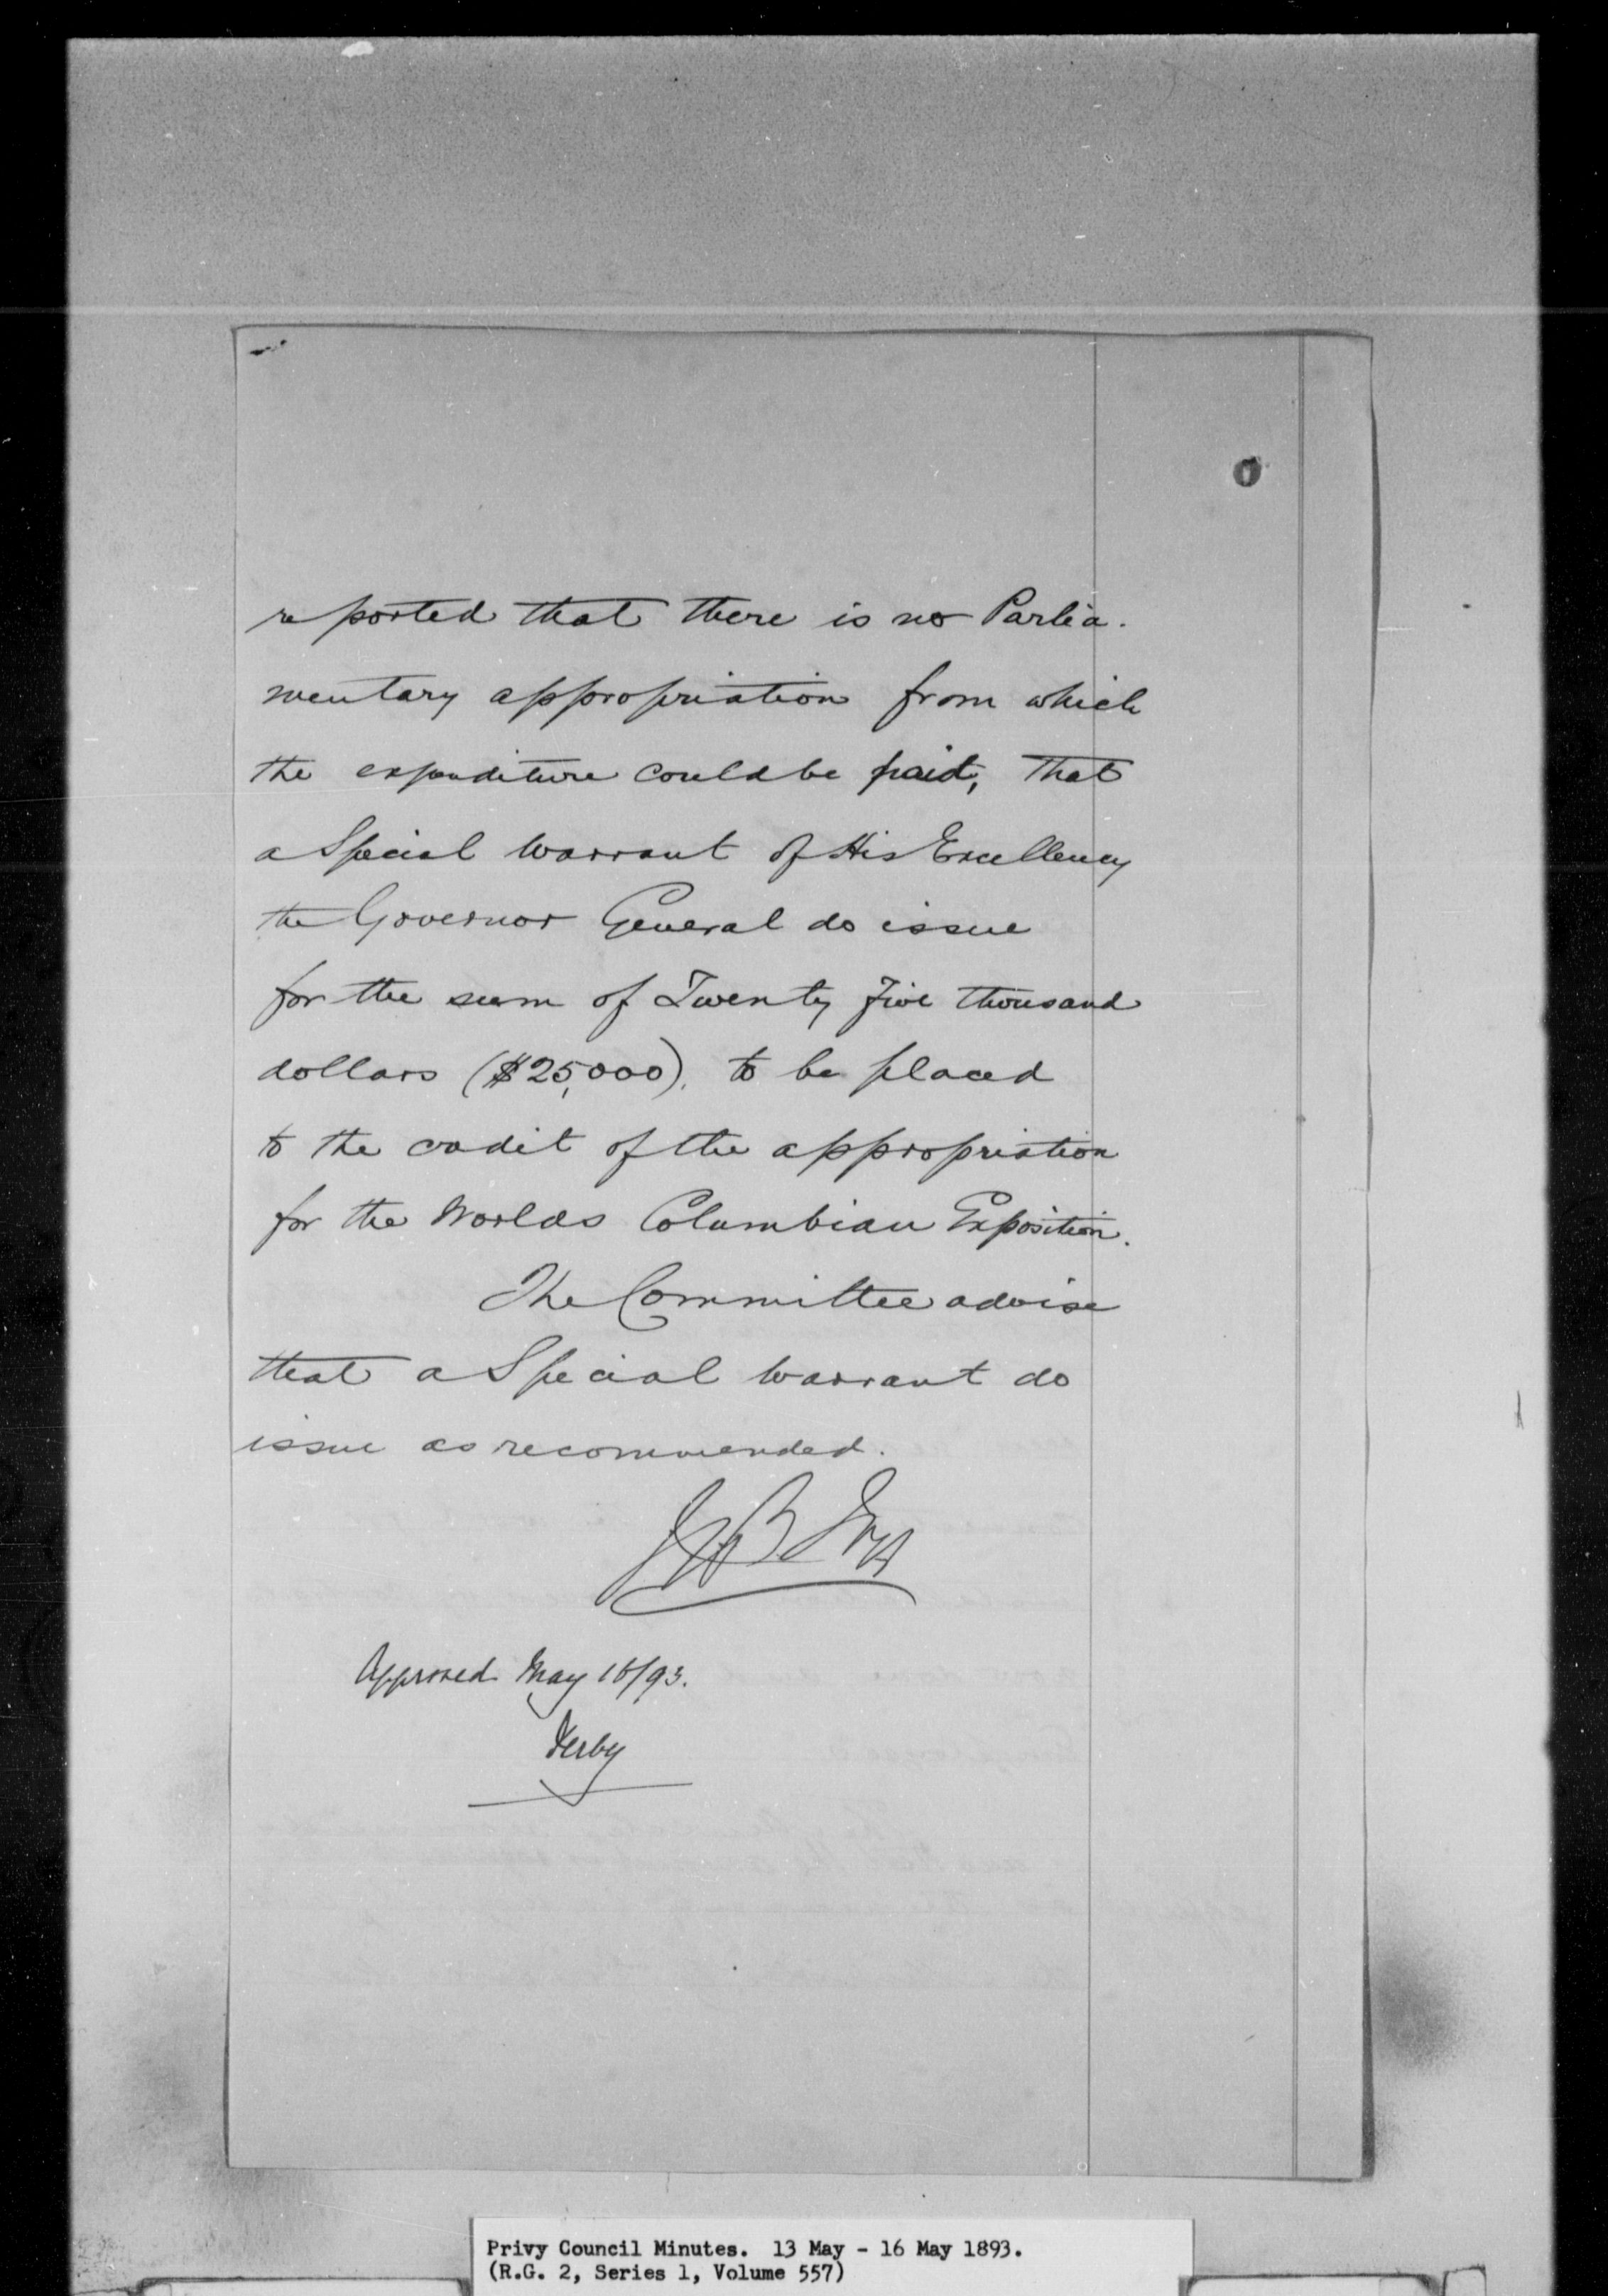 reported that there is no Parlia-
mentary appropriation from which
the expenditure could be paid, that
a Special Warrant of His Excellency
the Governor General do issue
for the sum of Twenty Five thousand
dollars ($25,000), to be placed
to the credit of the appropriation
for the Worlds Columbian Exposition.
The Committee advise
that a Special Warrant do
issue as recommended.
Approved May 16/93.
Derby
Privy Council Minutes. 13 May - 16 May 1893.
(R.G. 2, Series 1, Volume 557)